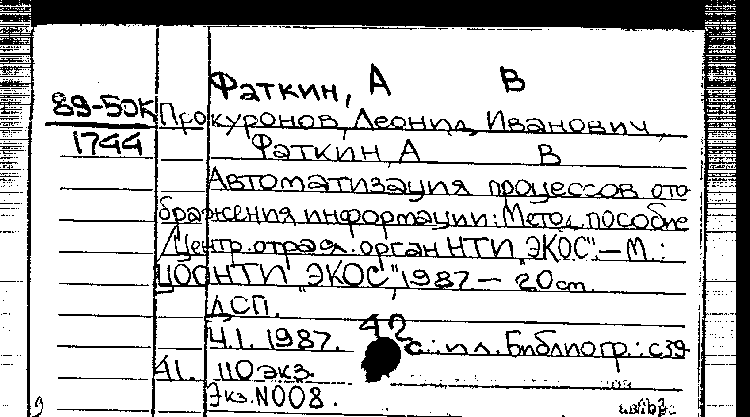 Фаткин, А В
89-50К
1744
Прокуронов, Леонид Иванович,
Фаткин, А В
Автоматизация процессов ото
бражения информации: Метод. пособие
Центр. отрасл. орган НТИ „ЭКОС".—М.:
ЦООНТИ „ЭКОС", 1987 — 20 см.
ДСП.
Ч.1. 1987. 42 с.: ил. Библиогр.: с 39-
41. 110 экз.
Экз. N008.